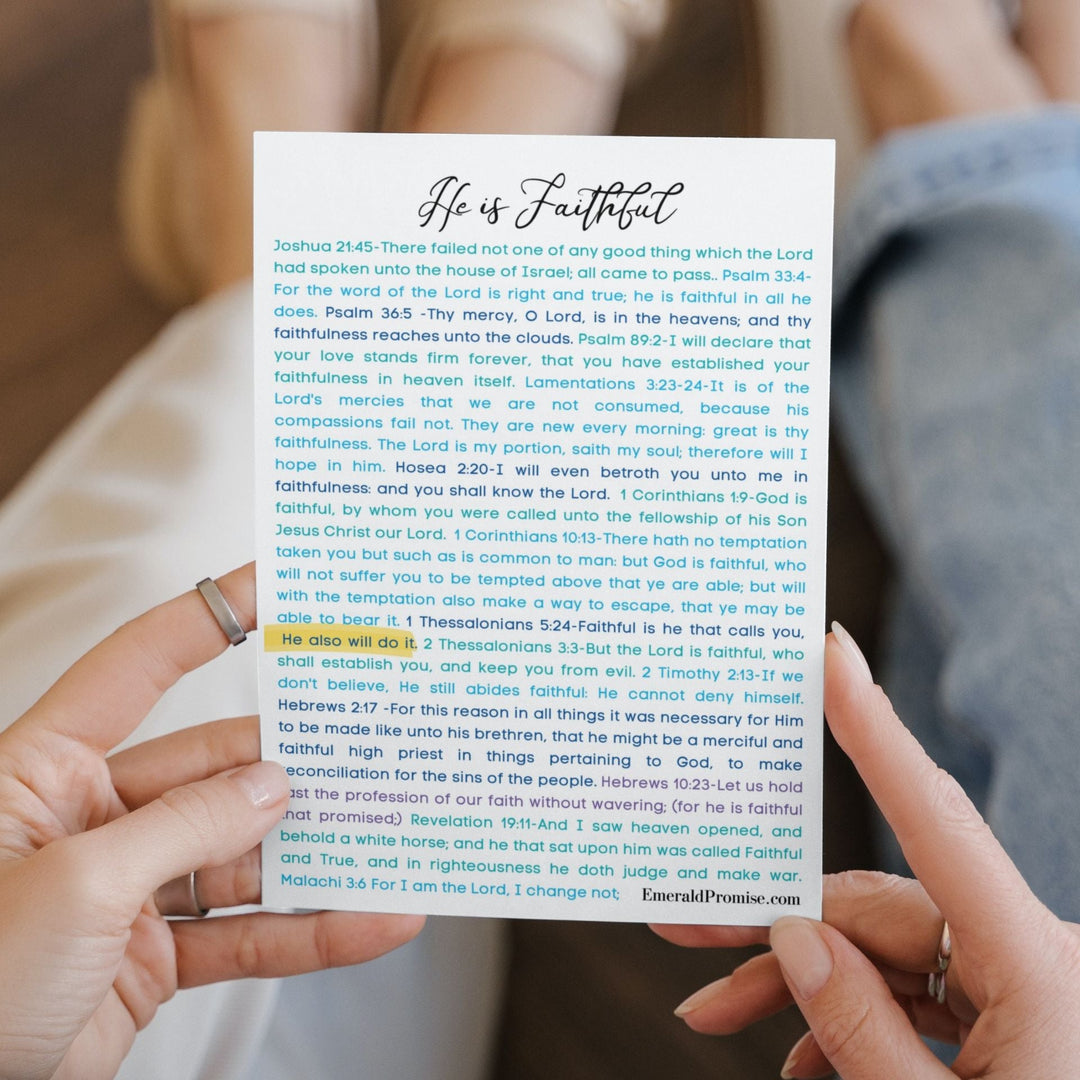 He is Faithful
Joshua 21:45-There failed not one of any good thing which the Lord
had spoken unto the house of Israel; all came to pass.. Psalm 33:4-
For the word of the Lord is right and true; he is faithful in all he
does. Psalm 36:5 -Thy mercy, O Lord, is in the heavens; and thy
faithfulness reaches unto the clouds. Psalm 89:2-I will declare that
your love stands firm forever, that you have established your
faithfulness in heaven itself. Lamentations 3:23-24-It is of the
Lord's mercies that we are not consumed, because his
compassions fail not. They are new every morning: great is thy
faithfulness. The Lord is my portion, saith my soul; therefore will I
hope in him. Hosea 2:20-I will even betroth you unto me in
faithfulness: and you shall know the Lord. 1 Corinthians 1:9-God is
faithful, by whom you were called unto the fellowship of his Son
Jesus Christ our Lord. 1 Corinthians 10:13-There hath no temptation
taken you but such as is common to man: but God is faithful, who
will not suffer you to be tempted above that ye are able; but will
with the temptation also make a way to escape, that ye may be
able to bear it. 1 Thessalonians 5:24-Faithful is he that calls you,
He also will do it. 2 Thessalonians 3:3-But the Lord is faithful, who
shall establish you, and keep you from evil. 2 Timothy 2:13-If we
don't believe, He still abides faithful: He cannot deny himself.
Hebrews 2:17 -For this reason in all things it was necessary for Him
to be made like unto his brethren, that he might be a merciful and
faithful high priest in things pertaining to God, to make
reconciliation for the sins of the people. Hebrews 10:23-Let us hold
fast the profession of our faith without wavering; (for he is faithful
that promised;) Revelation 19:11-And I saw heaven opened, and
behold a white horse; and he that sat upon him was called Faithful
and True, and in righteousness he doth judge and make war.
Malachi 3:6 For I am the Lord, I change not; EmeraldPromise.com